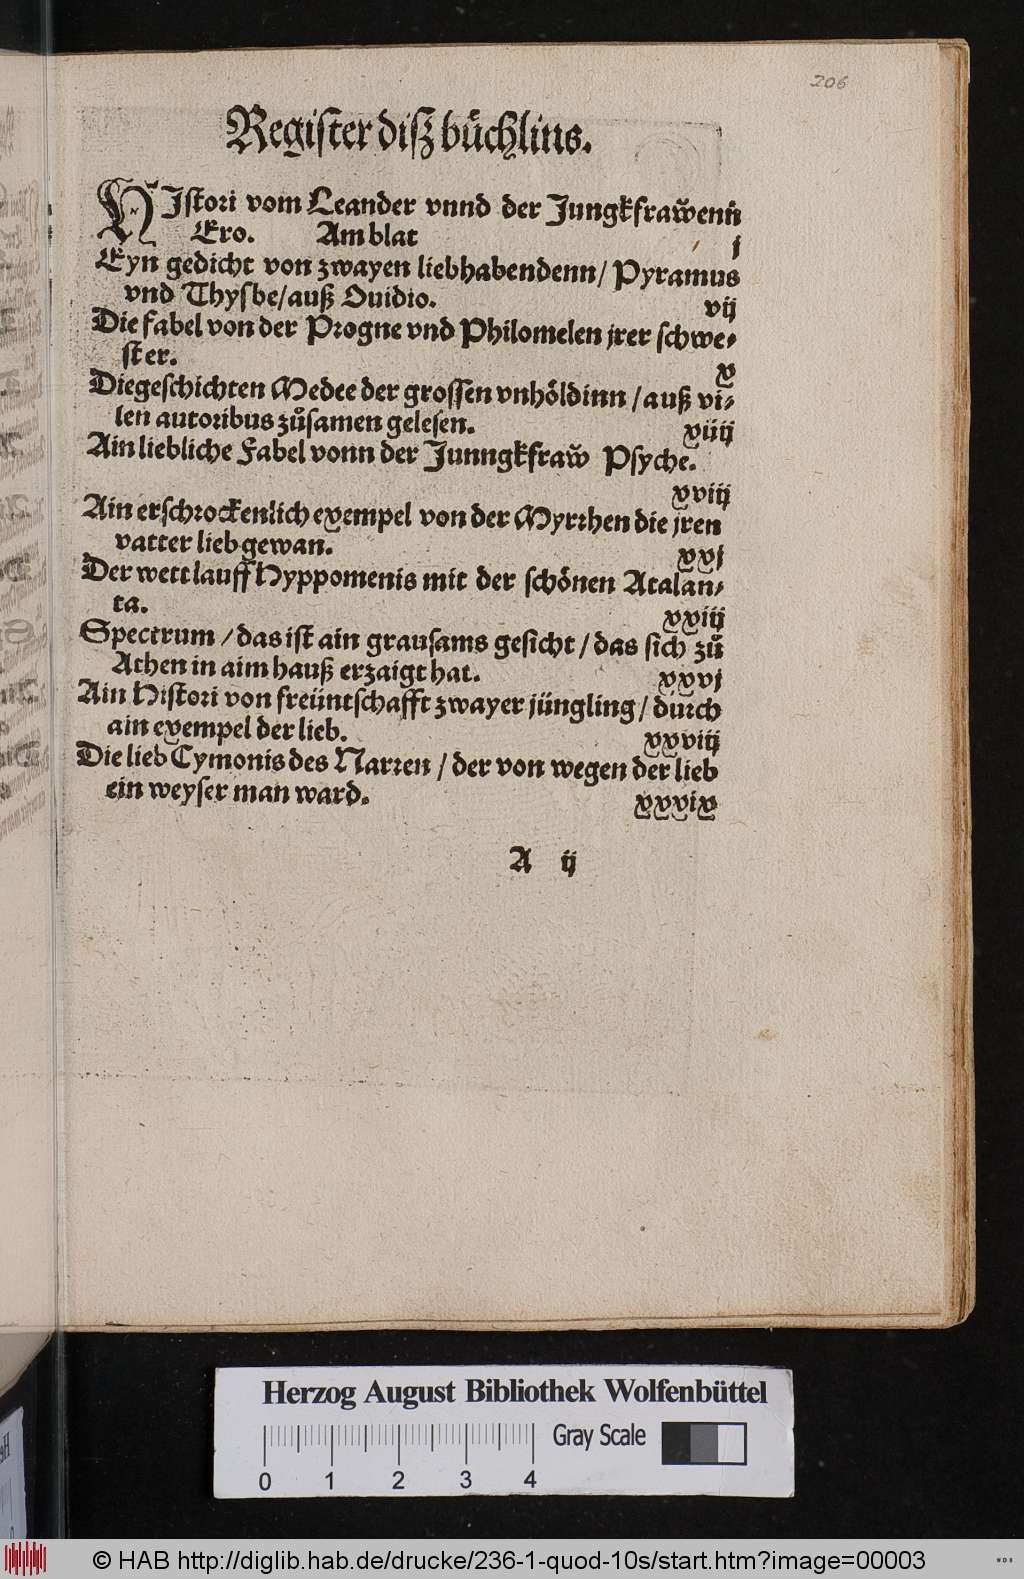 206
Register diſz bůchlins.
HIſtori vom Leander vnnd der Jungkfraw̆enn̄
Ero. Am blat j
Eyn gedicht von zwayen liebhabendenn / Pyramus
vnd Thyſbe / auß Ouidio. vij
Die fabel von der Progne vnd Philomelen jrer ſchwe⸗
ſter. x
Die geſchichten Medee der groſſen vnhöldinn / auß vi⸗
len autoribus zůſamen geleſen. xiiij
Ain liebliche Fabel vonn der Junngkfraw̆ Pſyche.
xviij
Ain erſchrockenlich exempel von der Myrrhen die jren
vatter lieb gewan. xxj
Der wettlauff Hyppomenis mit der ſchönen Atalan⸗
ta. xxiij
Spectrum / das iſt ain grauſams geſicht / das ſich zů
Athen in aim hauß erzaigt hat. xxvj
Ain Hiſtori von freüntſchafft zwayer jüngling / durch
ain exempel der lieb. xxviij
Die lieb Cymonis des Narren / der von wegen der lieb
ein weyſer man ward. xxxix
A ij
Herzog August Bibliothek Wolfenbüttel
Gray Scale
0 1 2 3 4
© HAB http://diglib.hab.de/drucke/236-1-quod-10s/start.htm?image=00003
WDB